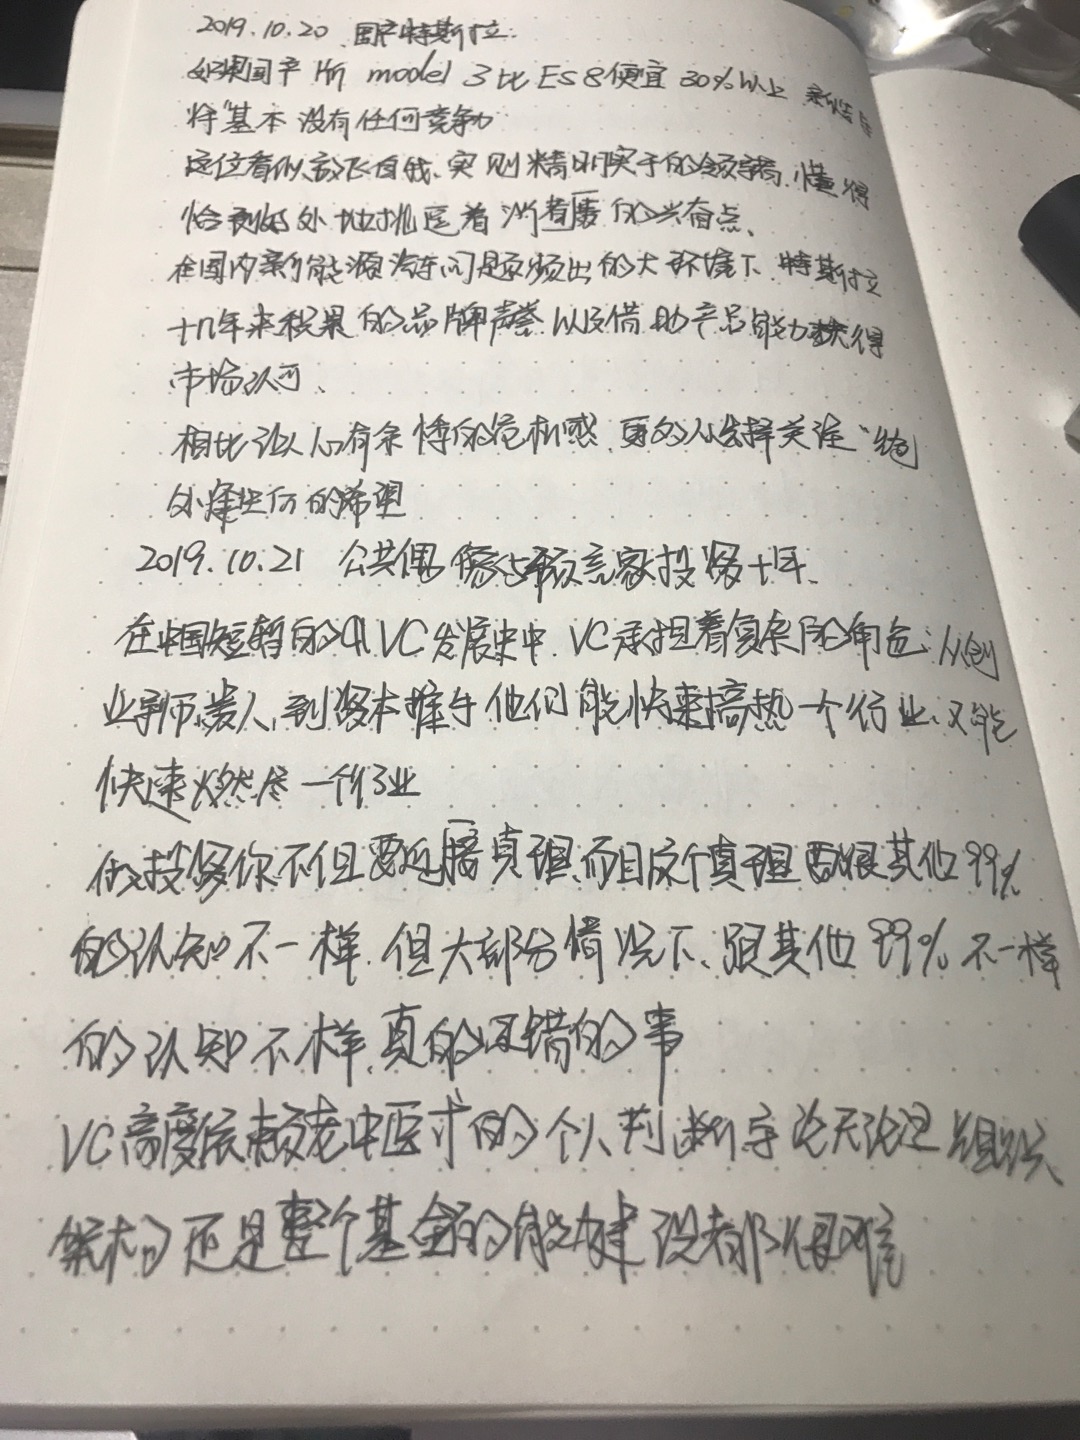 2019.10.20 国产特斯拉.
如果国产版 model 3比ES8便宜30%以上
将基本没有任何竞争力
这位看似放飞自我、实则精明实干的领导者,懂得
恰到好处地挑逗着消费者的兴奋点、
在国内新能源汽车问题频出的大环境下、特斯拉
十几年来积累的品牌声誉以及借助产品能力获得
市场认可、
相比让人心有余悸的危机感、更多的人选择关注
的希望
2019.10.21 公共偶像与预言家投资十年、
在中国短暂的 VC发展史中、VC承担着复杂的角色:从创
业导师、贵人、到资本推手他们能快速搞热一个行业、又能
快速燃尽一个行业
做投资你不但要逼近真理、而且这个真理要跟其他99%
的认知不一样、但大部分情况下、跟其他99%不一样
的认知不样、真的 错的事
VC高度依赖老中医式的个人判断 论无论是组织
架构还是整个基金的能力建设都很难